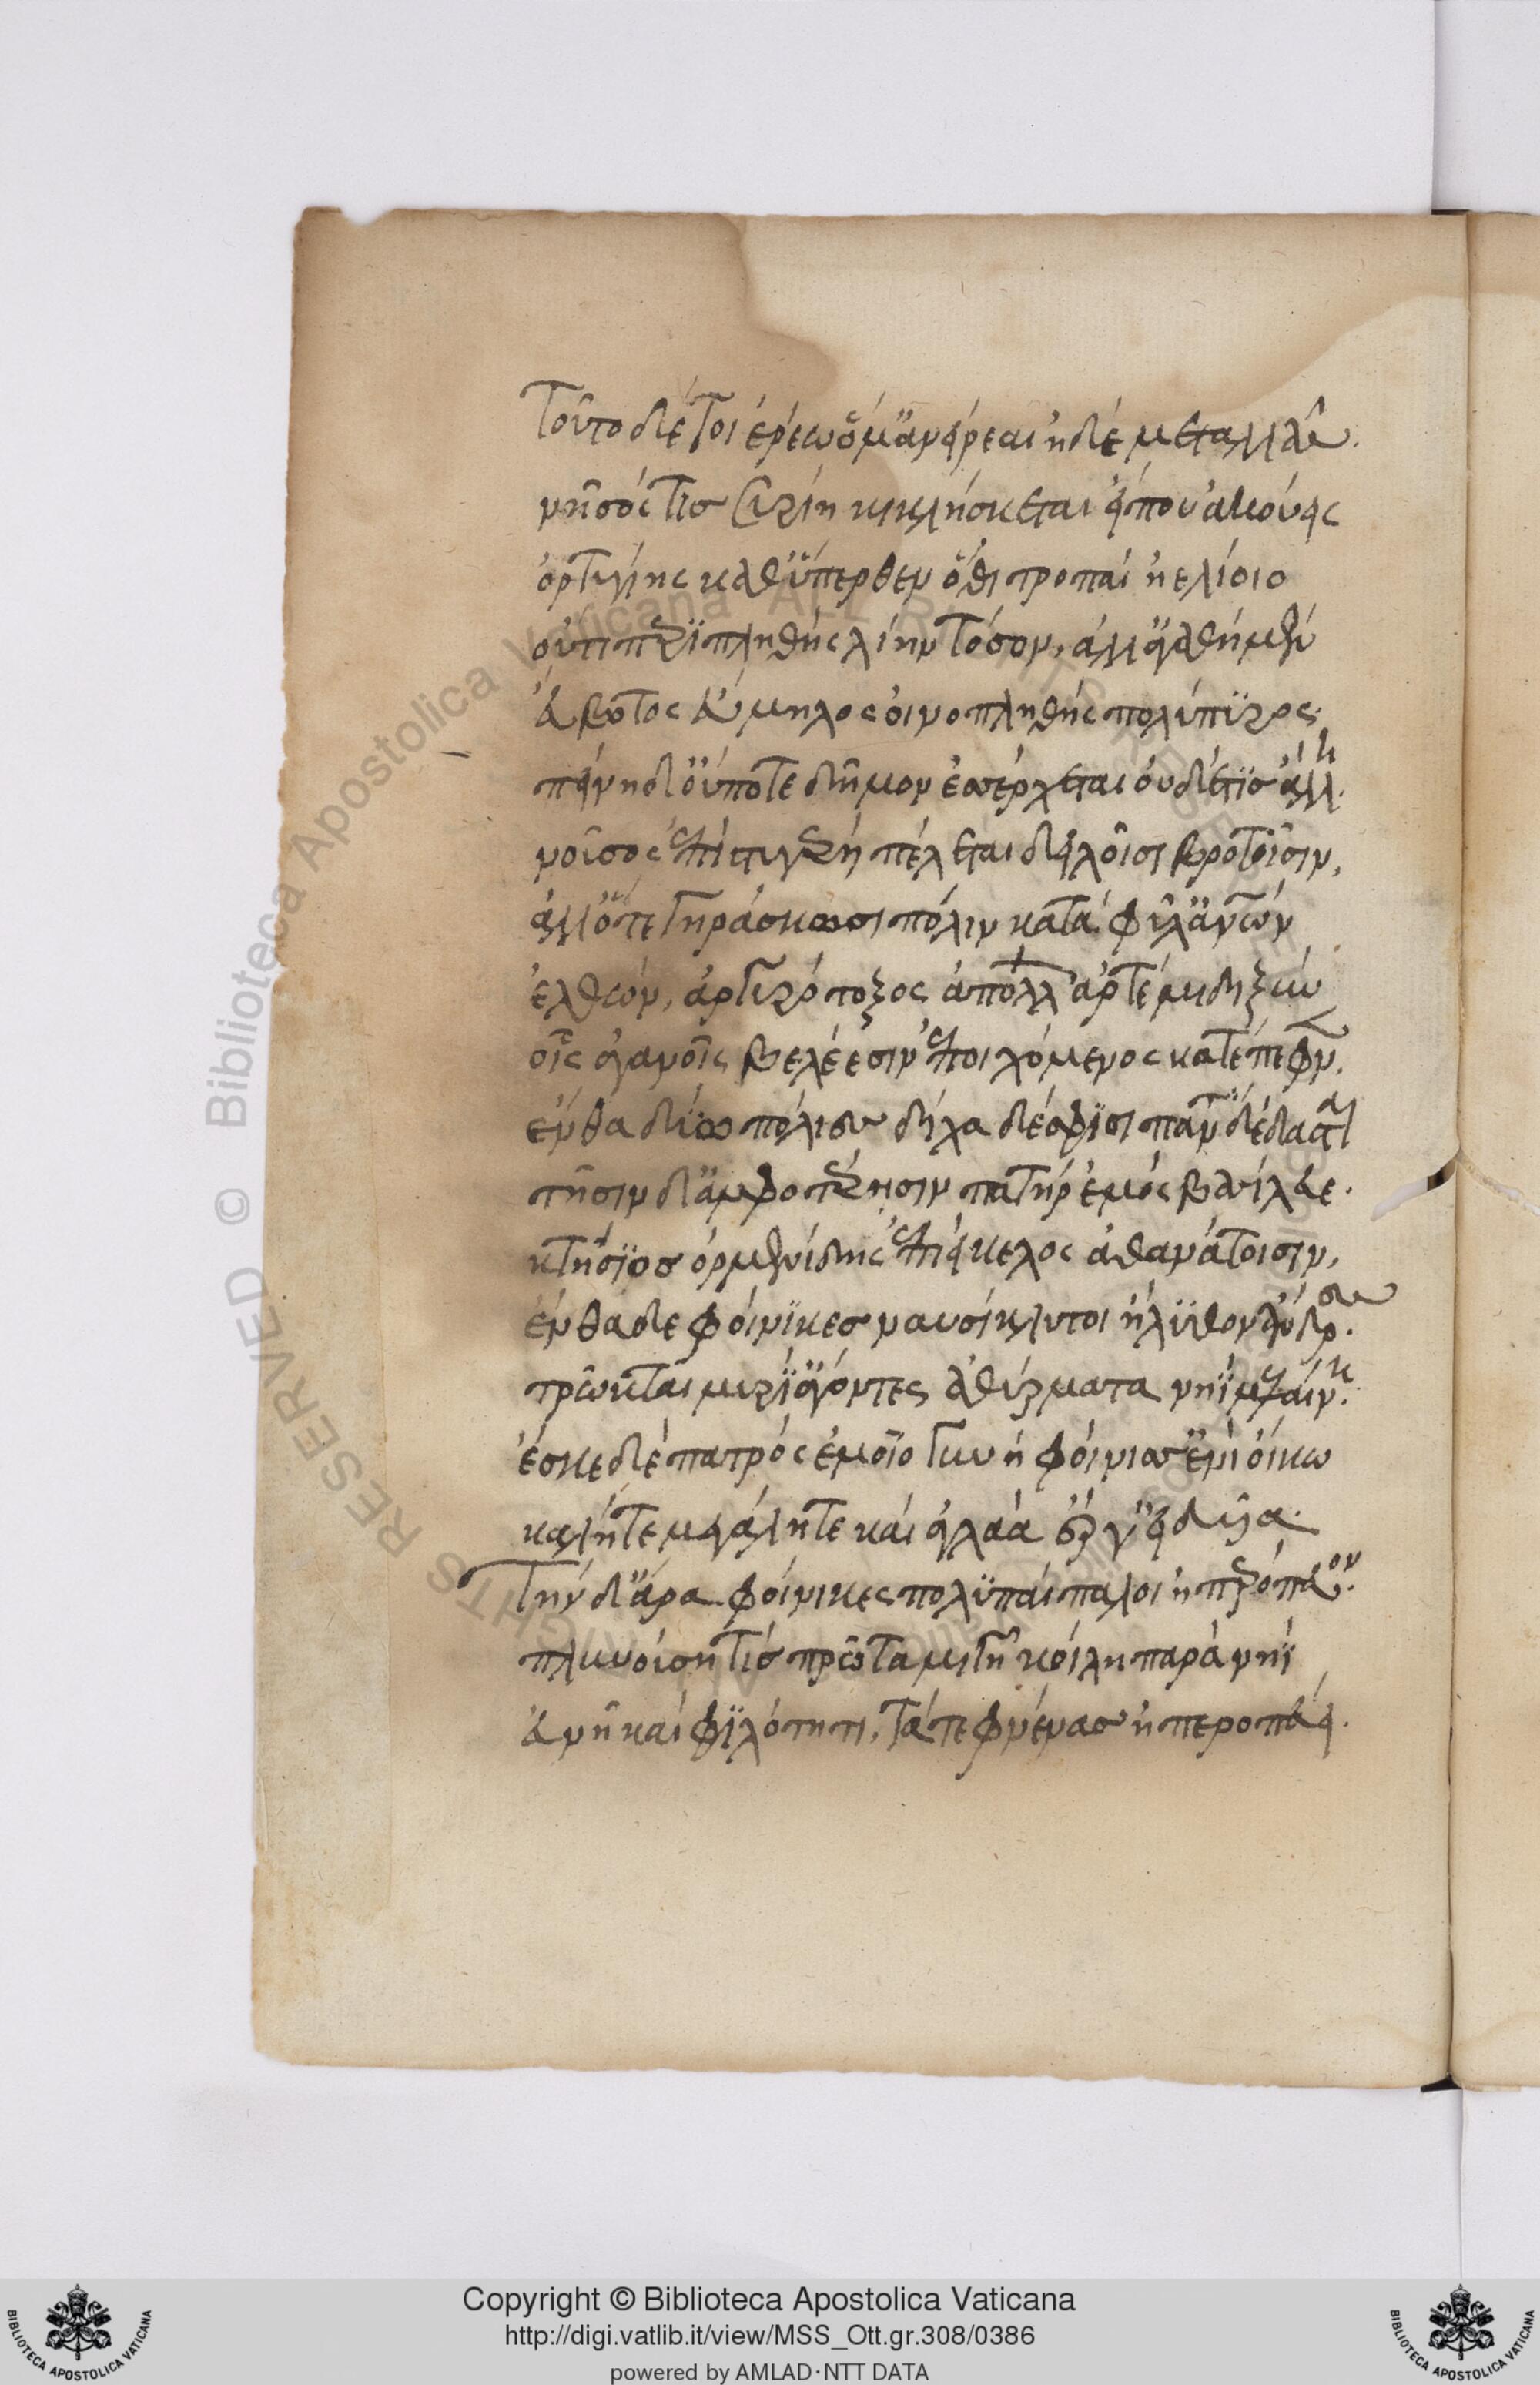 τοῦτο δέ τοι ἐρέω ὅ μ' ἀνείρεαι ἠδὲ μεταλλᾶς.
νῆσός τις συρίη κικλήσκεται εἴπου ἀκούεις
ὀρτυγίης καθύπερθεν ὅθι τροπαὶ ἠελίοιο
οὔτι περιπληθὴς λίην τόσον, ἀλλ' ἀγαθὴ μὲν
εὔβοτος εὔμηλος οἰνοπληθὴς πολύπυρος·
πείνη δ' οὔποτε δῆμον ἐσέρχεται οὐδέ τις ἄλλη
νοῦσος ἐπὶ στυγερὴ πέλεται δειλοῖσι βροτοῖσιν,
ἀλλ' ὅτε γηράσκωσι πόλιν κατὰ φῦλ' ἀνθρώπων
ἐλθὼν, ἀργυρότοξος ἀπόλλων ἀρτέμιδι ξὺν
οἷς ἀγανοῖς βελέεσιν ἐποιχόμενος κατέπεφνεν.
ἔνθα δύω πόλιες δίχα δέ σφισι πάντα δέδασται
τῇσιν δ' ἀμφοτέρῃσιν πατὴρ ἐμὸς βασίλευε.
κτήσιος ὀρμενίδης ἐπιείκελος ἀθανάτοισιν,
ἔνθα δε φοίνικες ναυσίκλυτοι ἤλυθον ἄνδρες.
τρῶκται μυρί' ἄγοντες ἀθύρματα νηῒ μελαίνῃ.
ἔσκε δὲ πατρὸς ἐμοῖο γυνὴ φοίνισσ' ἐνὶ οἴκω
καλή τε μεγάλη τε καὶ ἀγλαὰ ἔργ' εἰδυῖα.
τὴν δ' ἄρα φοίνικες πολυπαίπαλοι ἠπερόπευον.
πλυνούσῃ τις πρῶτα μίγη κοίλη παρὰ νηῒ
εὐνῇ καὶ φιλότητι, τά τε φρένας ἠπεροπεύει.
Copyright © Biblioteca Apostolica Vaticana
http://digi.vatlib.it/view/MSS_Ott.gr.308/0386
powered by AMLAD·NTT DATA